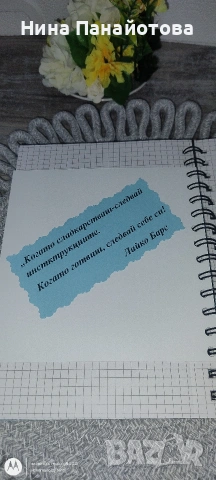 Нина Панайотова
„Когато сладкарстваш-следвай
инструкциите.
Когато готвиш, следвай себе си!
Лайко Барс
motorola
BAZAR